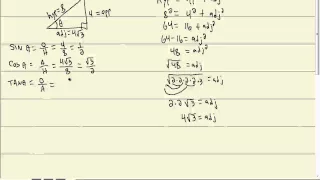 hyp = 8
4 = opp
θ
adj = 4√3
SIN θ = O/H = 4/8 = 1/2
COS θ = A/H = 4√3/8 = √3/2
TAN θ = O/A =
8² = 4² + adj²
64 = 16 + adj²
64 - 16 = adj²
48 = adj²
√48 = adj
√2·2·2·2·3 = adj
2·2√3 = adj
4√3 = adj